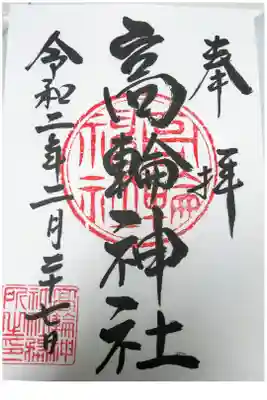 奉拝
高輪神社
令和二年二月二十七日
高輪神
社社務
所之印